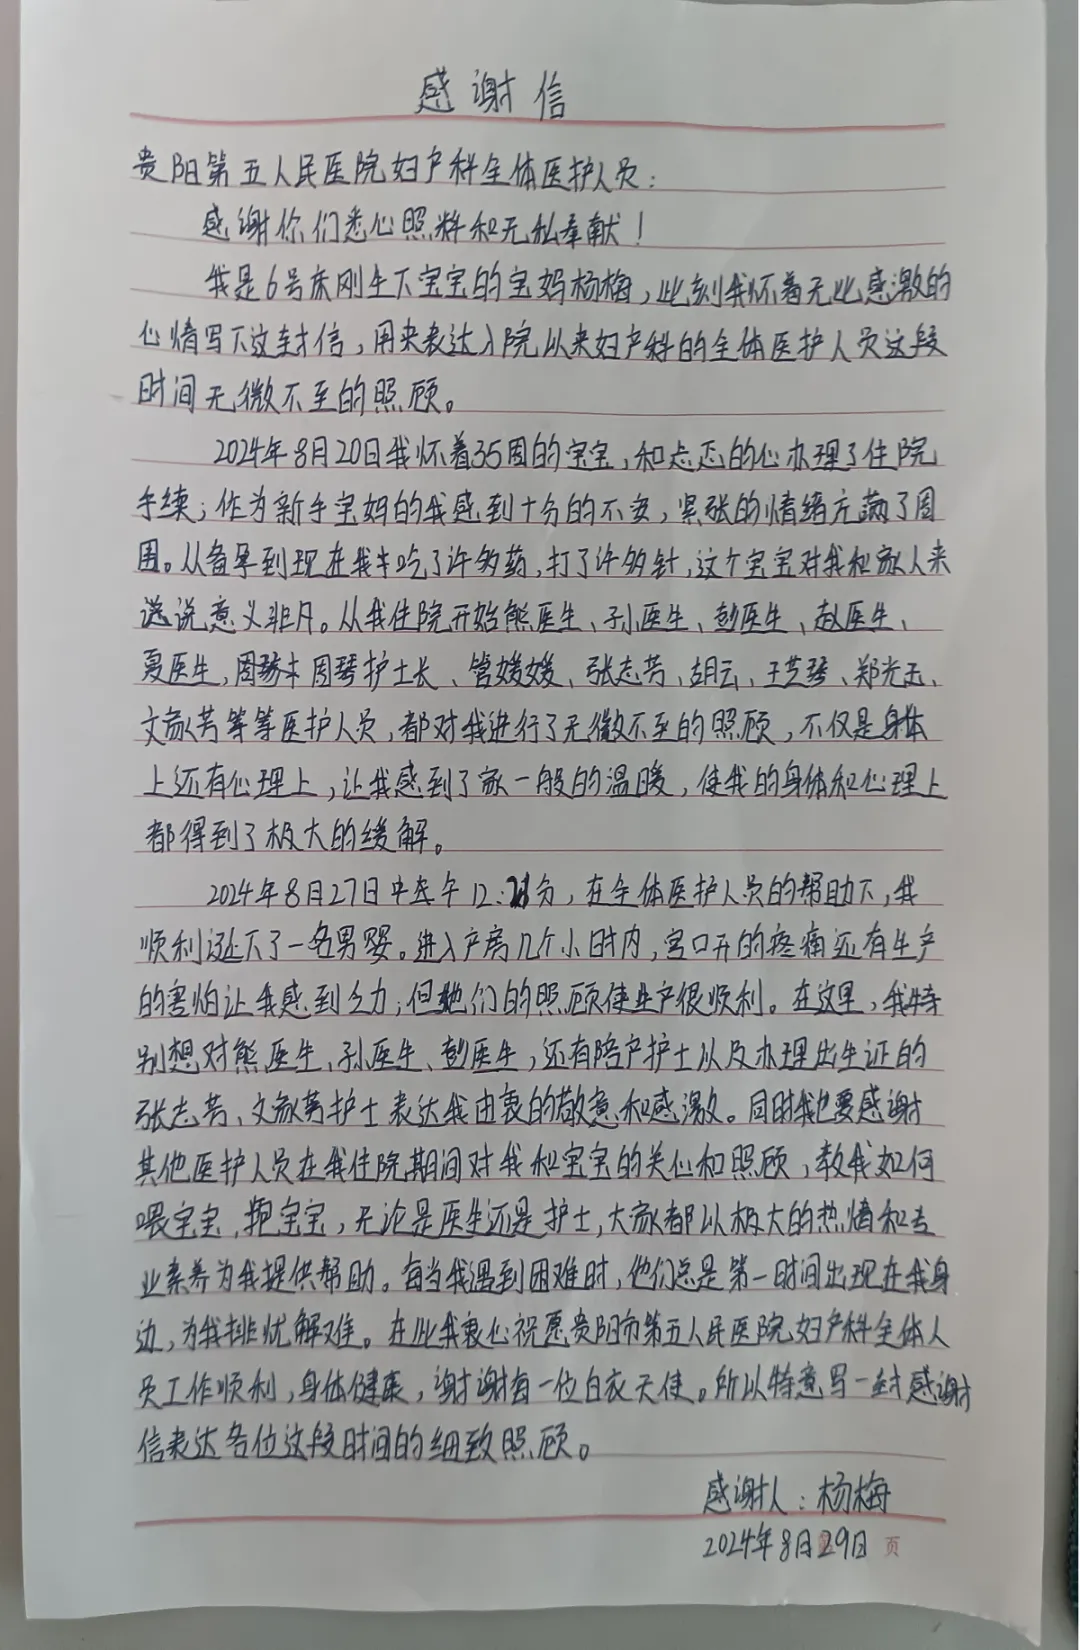 感谢信
贵阳第五人民医院妇产科全体医护人员:
感谢你们悉心照料和无私奉献!
我是6号床刚生下宝宝的宝妈杨梅,此刻我怀着无比感激的
心情写下这封信,用来表达入院以来妇产科的全体医护人员这段
时间无微不至的照顾。
2024年8月20日我怀着35周的宝宝,和忐忑的心办理了住院
手续;作为新手宝妈的我感到十分的不安,紧张的情绪充满了周
围。从备孕到现在我吃了许多药,打了许多针,这个宝宝对我和家人来
说意义非凡。从我住院开始熊医生、孙医生、彭医生、赵医生、
夏医生,周琴护士长、管媛媛、张志芳、胡云、王芝琴、郑光玉、
文家芳等等医护人员,都对我进行了无微不至的照顾,不仅是身体
上还有心理上,让我感到了家一般的温暖,使我的身体和心理上
都得到了极大的缓解。
2024年8月27日中午12:分,在全体医护人员的帮助下,我
顺利诞下了一名男婴。进入产房几个小时内,宫口开的疼痛还有生产
的害怕让我感到乏力;但她们的照顾使生产很顺利。在这里,我特
别想对熊医生、孙医生、彭医生,还有陪产护士以及办理出生证的
张志芳、文家芳护士表达我由衷的敬意和感激。同时我也要感谢
其他医护人员在我住院期间对我和宝宝的关心和照顾,教我如何
喂宝宝,抱宝宝,无论是医生还是护士,大家都以极大的热情和专
业素养为我提供帮助。每当我遇到困难时,他们总是第一时间出现在我身
边,为我排忧解难。在此我衷心祝愿贵阳市第五人民医院妇产科全体人
员工作顺利,身体健康,谢谢每一位白衣天使。所以特意写一封感谢
信表达各位这段时间的细致照顾。
感谢人:杨梅
2024年8月29日 页